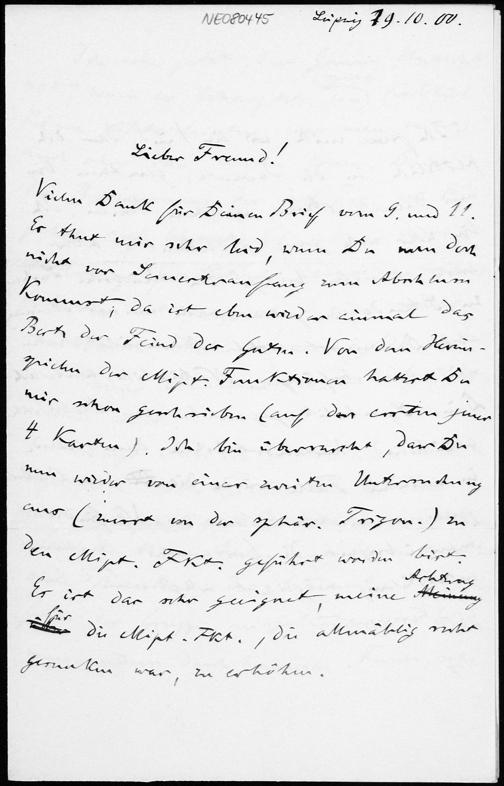 NE080445
Leipzig 19.10.00.
Lieber Freund!
Vielen Dank für Deinen Brief vom 9. und 11.
Es thut mir sehr leid, wenn Du nun doch
nicht vor Semesteranfang zum Abschluss
kommst, da ist eben wieder einmal das
Beste der Feind des Guten. Von dem Herein-
spielen der ellipt. Funktionen hattest Du
mir schon geschrieben (auf der ersten jener
4 Karten). Ich bin überrascht, dass Du
nun wieder von einer zweiten Untersuchung
aus (zuerst von der sphär. Trigon.) zu
den ellipt. Fkt. geführt worden bist.
Es ist das sehr geeignet, meine Achtung
für die ellipt. Fkt., die allmählig recht
gesunken war, zu erhöhen.